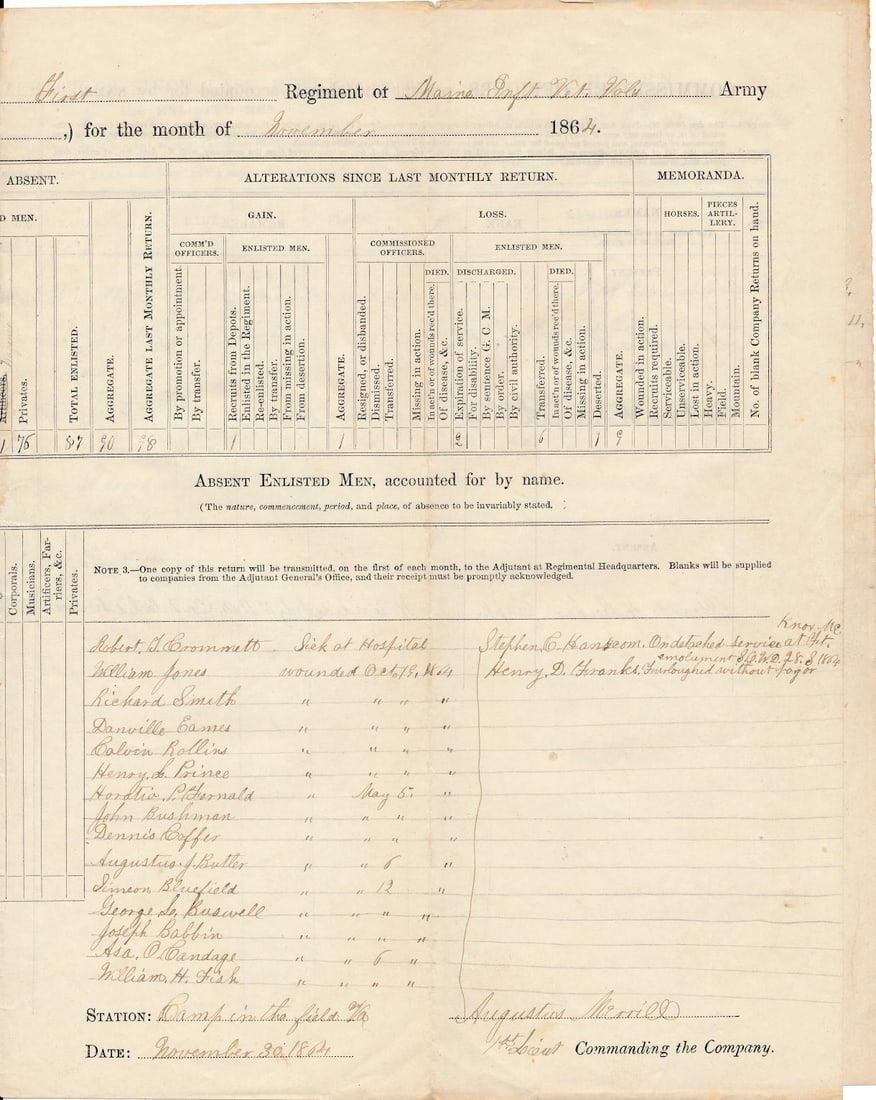 First Regiment of Maine Inft. Vet. Vols Army
,) for the month of November 1864.
ABSENT. ALTERATIONS SINCE LAST MONTHLY RETURN. MEMORANDA.
D MEN. GAIN. LOSS. HORSES. PIECES ARTIL-LERY.
COMM'D OFFICERS. ENLISTED MEN. COMMISSIONED OFFICERS. ENLISTED MEN.
DIED. DISCHARGED. DIED.
Artificers,
Privates.
TOTAL ENLISTED.
AGGREGATE.
AGGREGATE LAST MONTHLY RETURN.
By promotion or appointment.
By transfer.
Recruits from Depots.
Enlisted in the Regiment.
Re-enlisted.
By transfer.
From missing in action.
From desertion.
AGGREGATE.
Resigned, or disbanded.
Dismissed.
Transferred.
Missing in action.
In act'n or of wounds rec'd there.
Of disease, &c.
Expiration of service.
For disability.
By sentence G. C M.
By order.
By civil authority.
Transferred.
In act'n or of wounds rec'd there.
Of disease, &c.
Missing in action.
Deserted.
AGGREGATE.
Wounded in action.
Recruits required.
Serviceable.
Unserviceable.
Lost in action.
Heavy.
Field.
Mountain.
No. of blank Company Returns on hand.
1 76 87 90 98 1 1 2 6 1 9
ABSENT ENLISTED MEN, accounted for by name.
(The nature, commencement, period, and place, of absence to be invariably stated.
Corporals.
Musicians.
Artificers, Far-riers, &c.
Privates.
NOTE 3.—One copy of this return will be transmitted, on the first of each month, to the Adjutant at Regimental Headquarters. Blanks will be supplied
to companies from the Adjutant General's Office, and their receipt must be promptly acknowledged.
Knox Me
Robert T. Crommett. Sick at Hospital Stephen C. Hanscom. On detached service at Ft.
William Jones wounded Oct 19, 1864 Henry D. Franks. Furloughed without
Richard Smith " " " "
Danville Eames " " " "
Calvin Rollins " " " "
Henry L. Prince " " " "
Horatio P. Fernald " May 5. "
John Bushman " " " "
Dennis Coffer " " " "
Augustus J. Butler " " 6 "
Simeon Bluefield " " 12 "
George L. Buswell " " " "
Joseph Babbin " " " "
Asa. O. Candage " " 6 "
William. H. Fish " " " "
STATION: Camp in the field Va Augustus Merrill
DATE: November 30 1864 1st Lieut Commanding the Company.